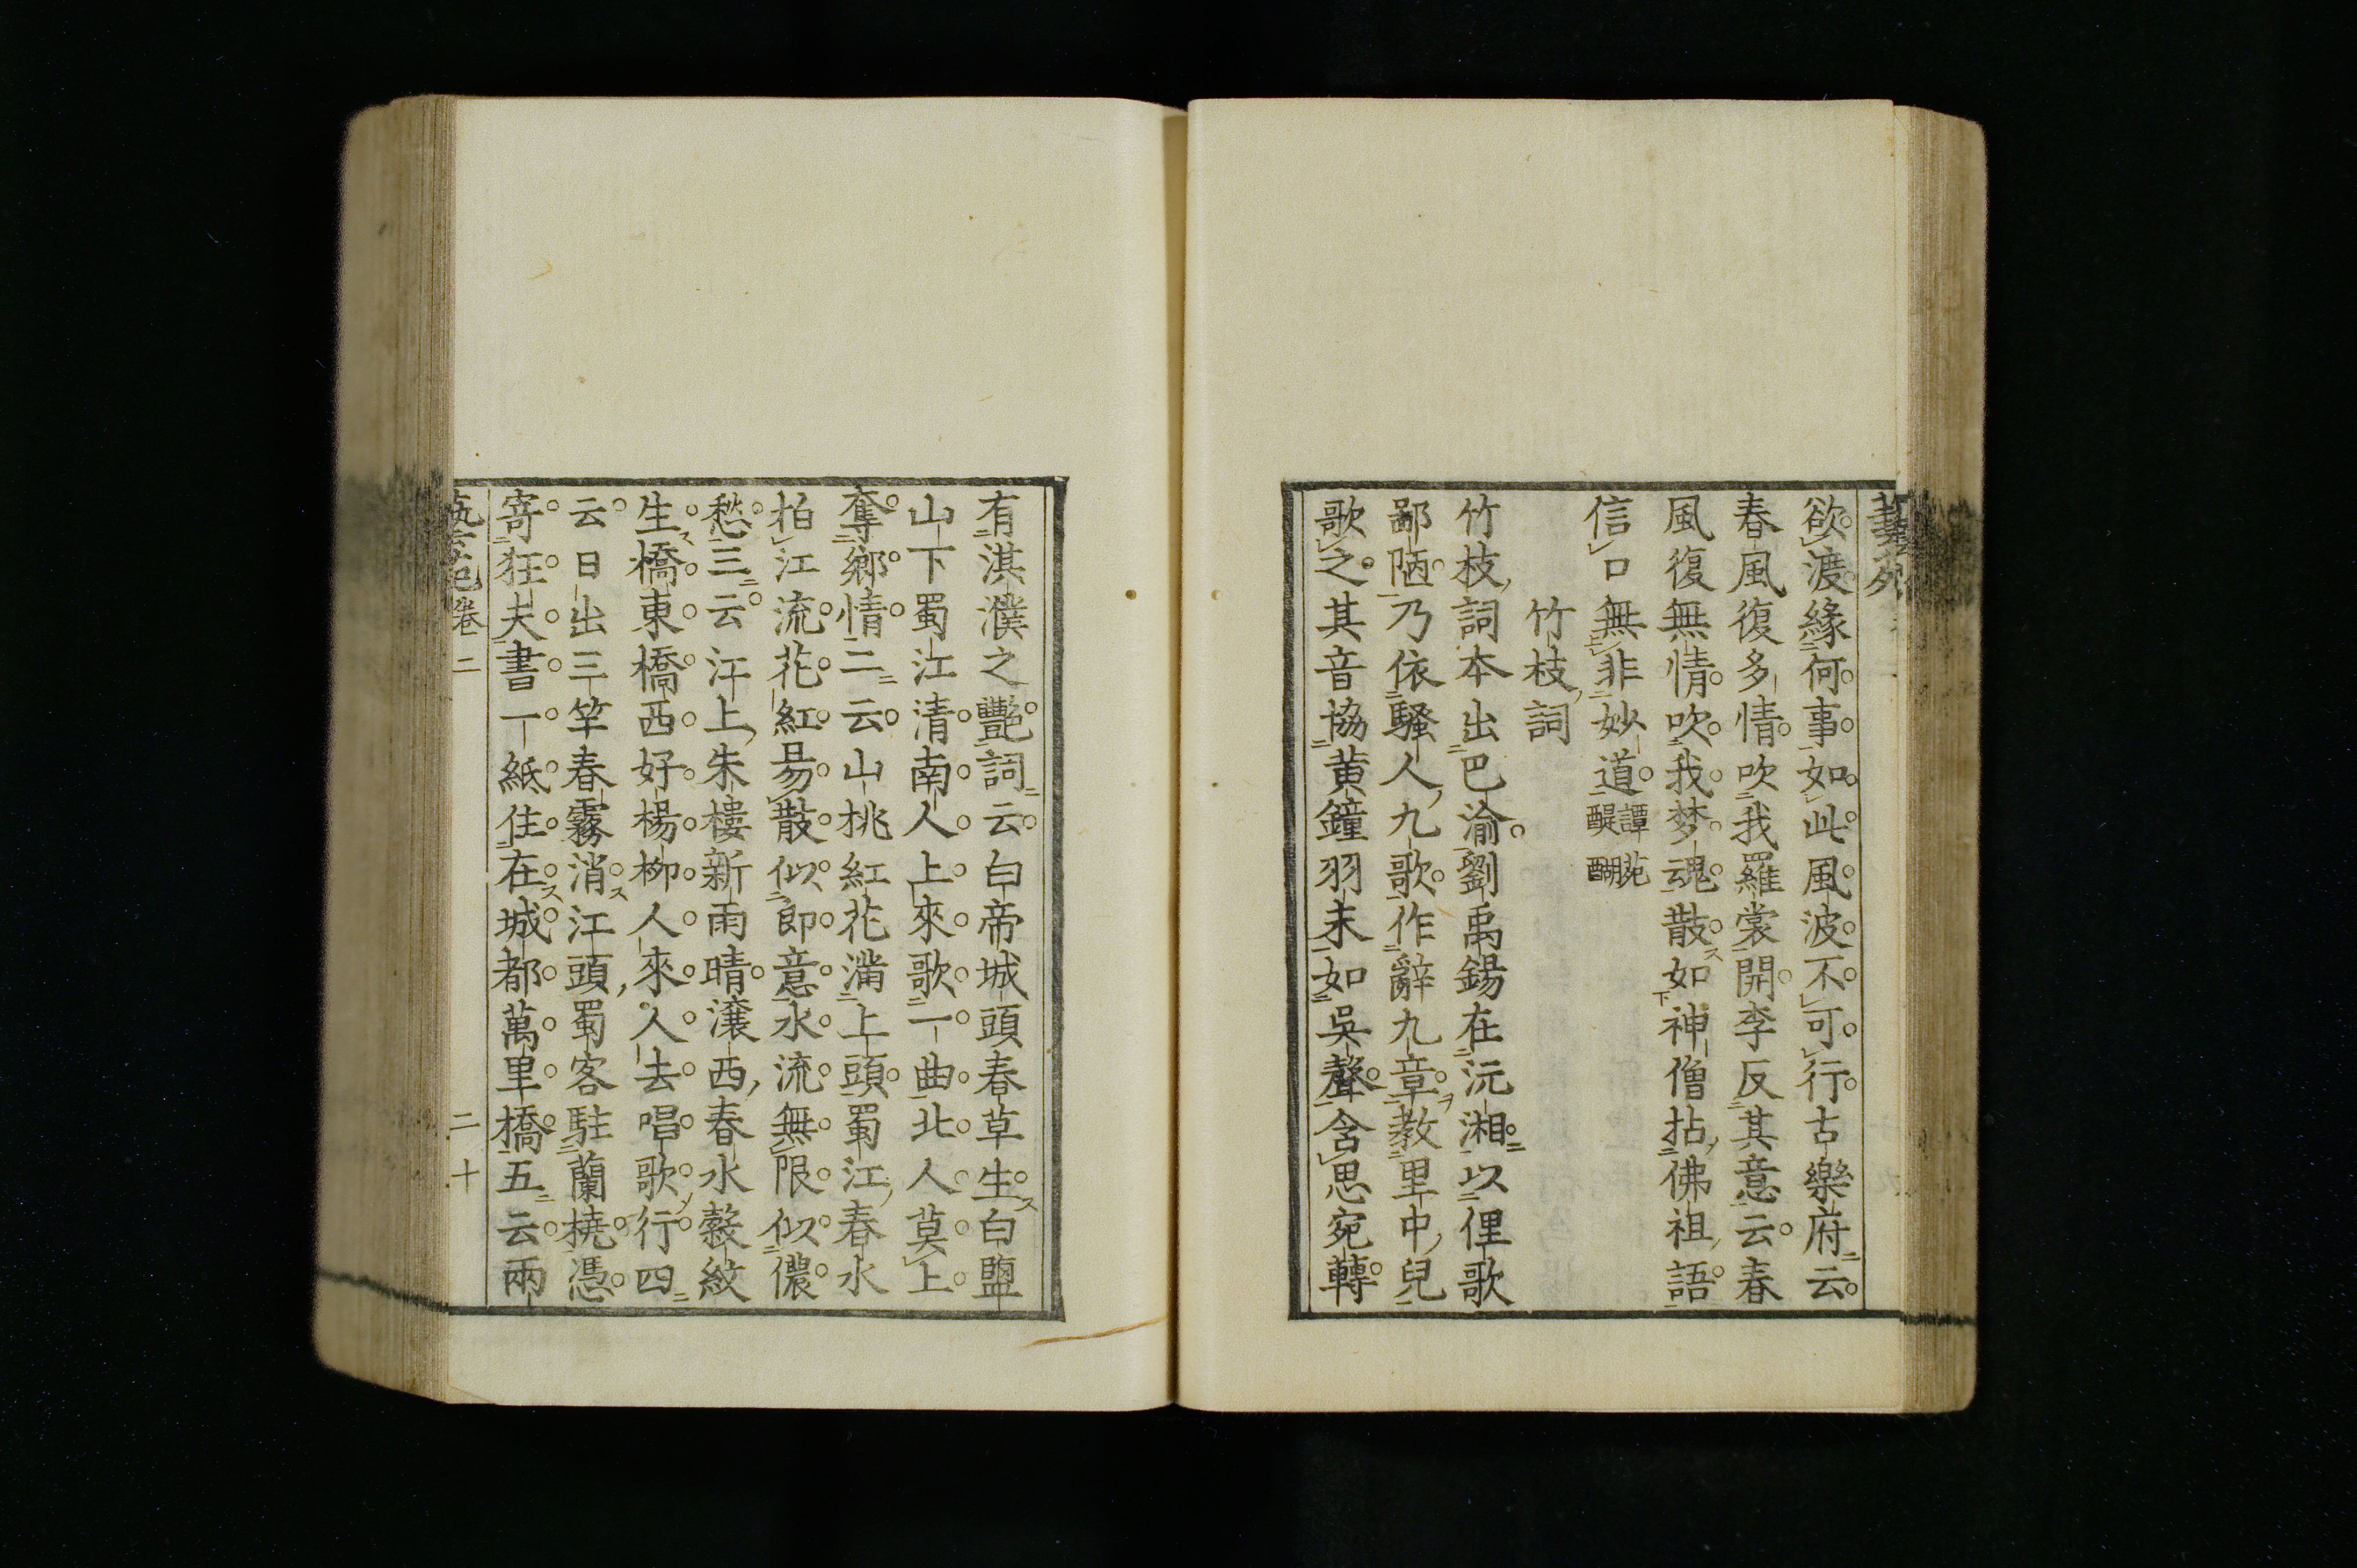 欲渡緣何事如此風波不可行古樂府云
春風復多情吹我羅裳開李反其意云春
風復無情吹我梦魂散如神僧拈佛祖語
信口無非妙道譚苑醍醐
竹枝詞
竹枝詞本出巴渝劉禹錫在沅湘以俚歌
鄙陋乃依騷人九歌作辭九章教里中兒
歌之其音協黃鐘羽末如吳聲含思宛轉
有淇濮之艷詞云白帝城頭春草生白鹽
山下蜀江清南人上來歌一曲北人莫上
奪鄉情二云山桃紅花滿上頭蜀江春水
拍江流花紅易散似郎意水流無限似儂
愁三云江上朱樓新雨晴瀼西春水縠紋
生橋東橋西好楊柳人來人去唱歌行四
云日出三竿春霧消江頭蜀客駐蘭橈憑
寄狂夫書一紙住在城都萬里橋五云兩
卷二
二十